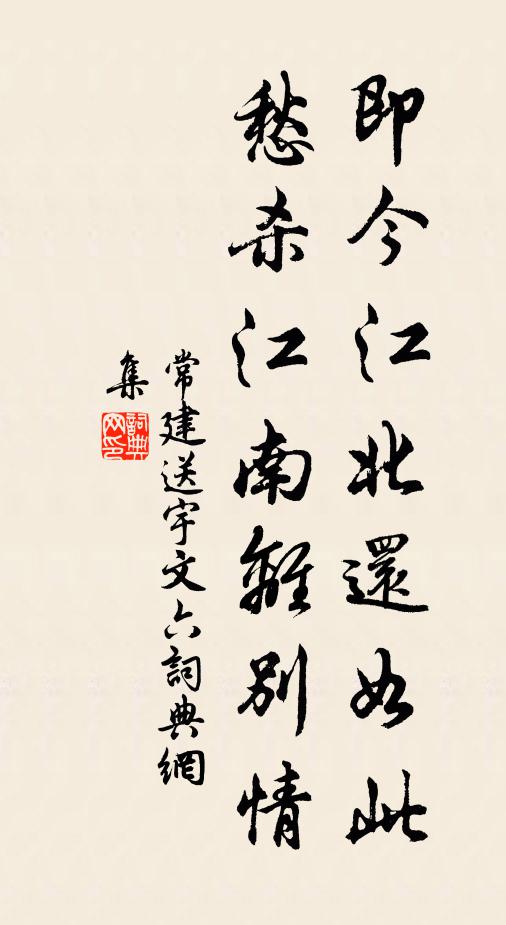 即今江北還如此
愁杀江南離別情
常建送宇文六詞典網
集
詞典網印